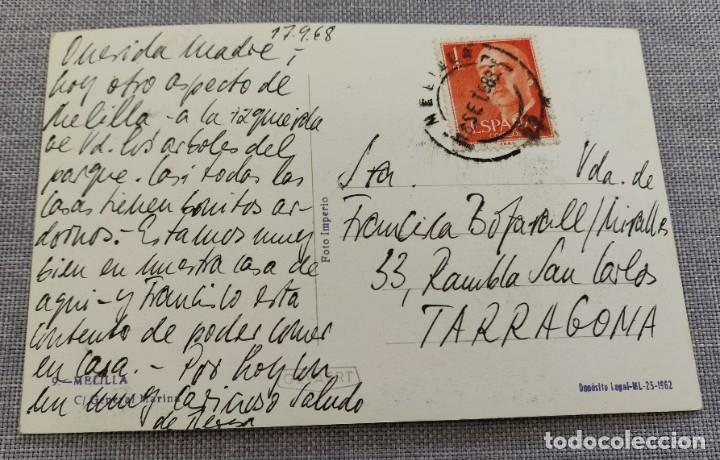 17.9.68
Querida Madre,
hoy otro aspecto de
Melilla - a la izquierda
ve Vd. los árboles del
parque. Casi todas las
casas tienen bonitos ar-
dornos. - Estamos muy
bien en nuestra casa de
aquí - y Francisco esta
contento de poder comer
en casa. - Por hoy un
un muy cariñoso saludo
de
9.-MELILLA
C/ General Marina
Foto Imperio
1
ESPAÑA
MELILLA
Sra. Vda. de
Francisca Bofarull/Miralles
33, Rambla San Carlos
TARRAGONA
Depósito Legal-ML-25-1962
todocoleccion.net